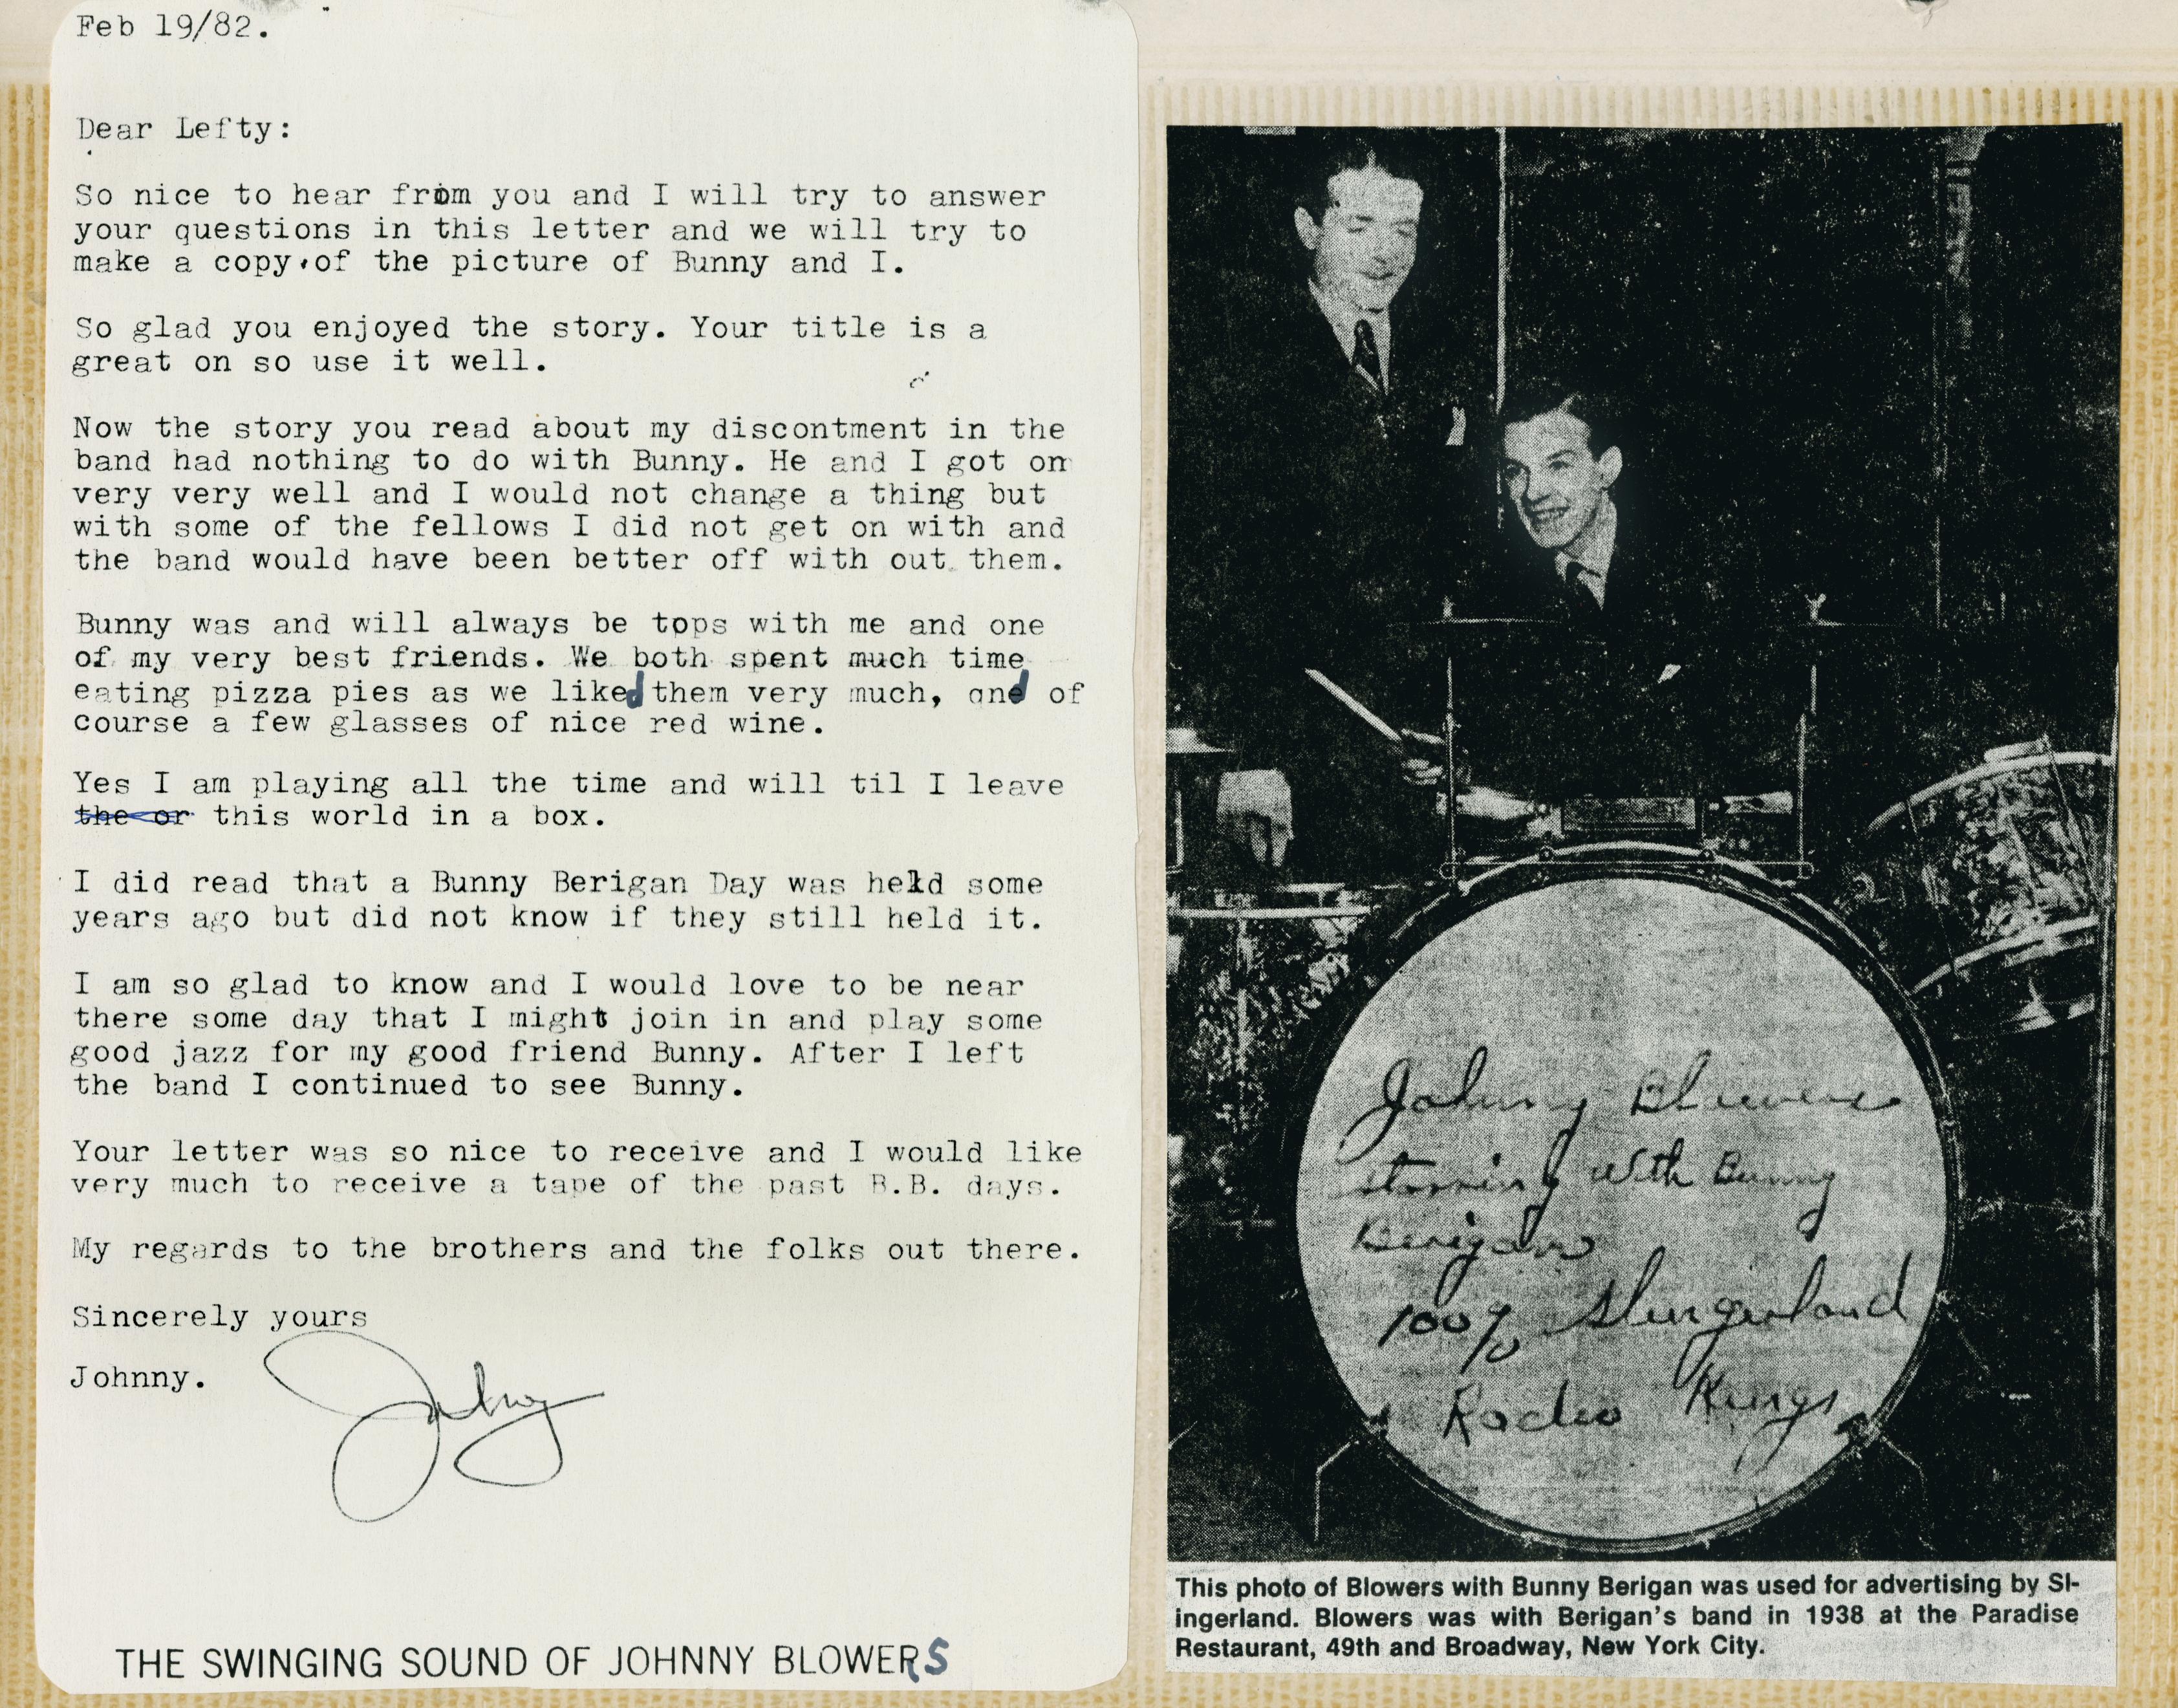 Feb 19/82.
Dear Lefty:
So nice to hear from you and I will try to answer
your questions in this letter and we will try to
make a copy of the picture of Bunny and I.
So glad you enjoyed the story. Your title is a
great on so use it well.
Now the story you read about my discontment in the
band had nothing to do with Bunny. He and I got on
very very well and I would not change a thing but
with some of the fellows I did not get on with and
the band would have been better off with out them.
Bunny was and will always be tops with me and one
of my very best friends. We both spent much time
eating pizza pies as we liked them very much, and of
course a few glasses of nice red wine.
Yes I am playing all the time and will til I leave
the or this world in a box.
I did read that a Bunny Berigan Day was held some
years ago but did not know if they still held it.
I am so glad to know and I would love to be near
there some day that I might join in and play some
good jazz for my good friend Bunny. After I left
the band I continued to see Bunny.
Your letter was so nice to receive and I would like
very much to receive a tape of the past B.B. days.
My regards to the brothers and the folks out there.
Sincerely yours
Johnny.
Johnny
THE SWINGING SOUND OF JOHNNY BLOWERS
Johnny Blowers
starring with Bunny
Berigan
100% Slingerland
Radio Kings
This photo of Blowers with Bunny Berigan was used for advertising by Sl-
ingerland. Blowers was with Berigan's band in 1938 at the Paradise
Restaurant, 49th and Broadway, New York City.